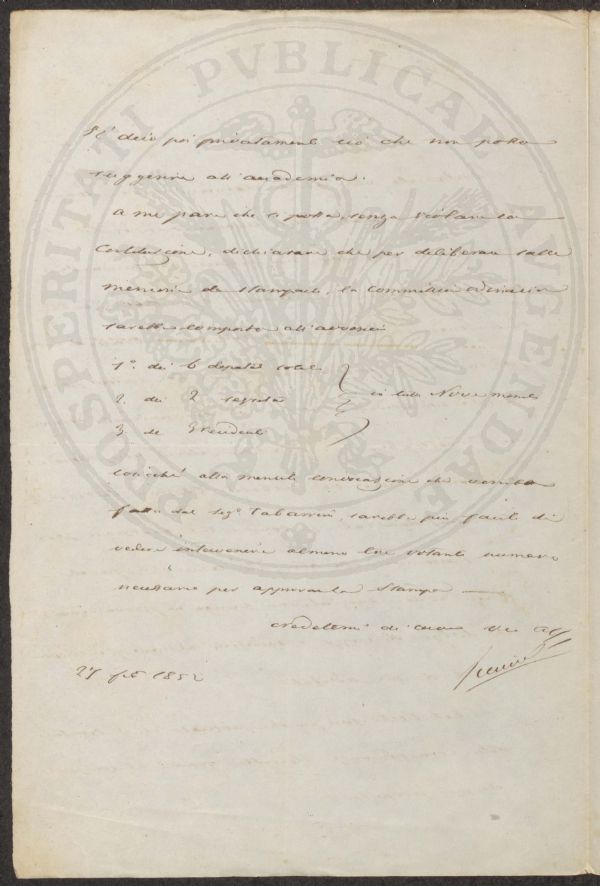 PROSPERITATI PVBLICAE AVGENDAE
privatamente ciò che non posso
suggerire all'accademia.
a me pare che si possa, senza violare la
Costituzione, dichiarare che per deliberare sulle
memorie da stamparsi, la
sarebbe composta all'avvenire
1º. dei 6 deputati
2. dei 2 segretari
3 de in tutto Nove
cosicché alla mensile convocazione che
fatta dal Sigr Tabarrini, sarebbe più facile di
vedere intervenire almeno tre votanti numero
necessario per approvare la stampa
credetemi di cuore
27 1852